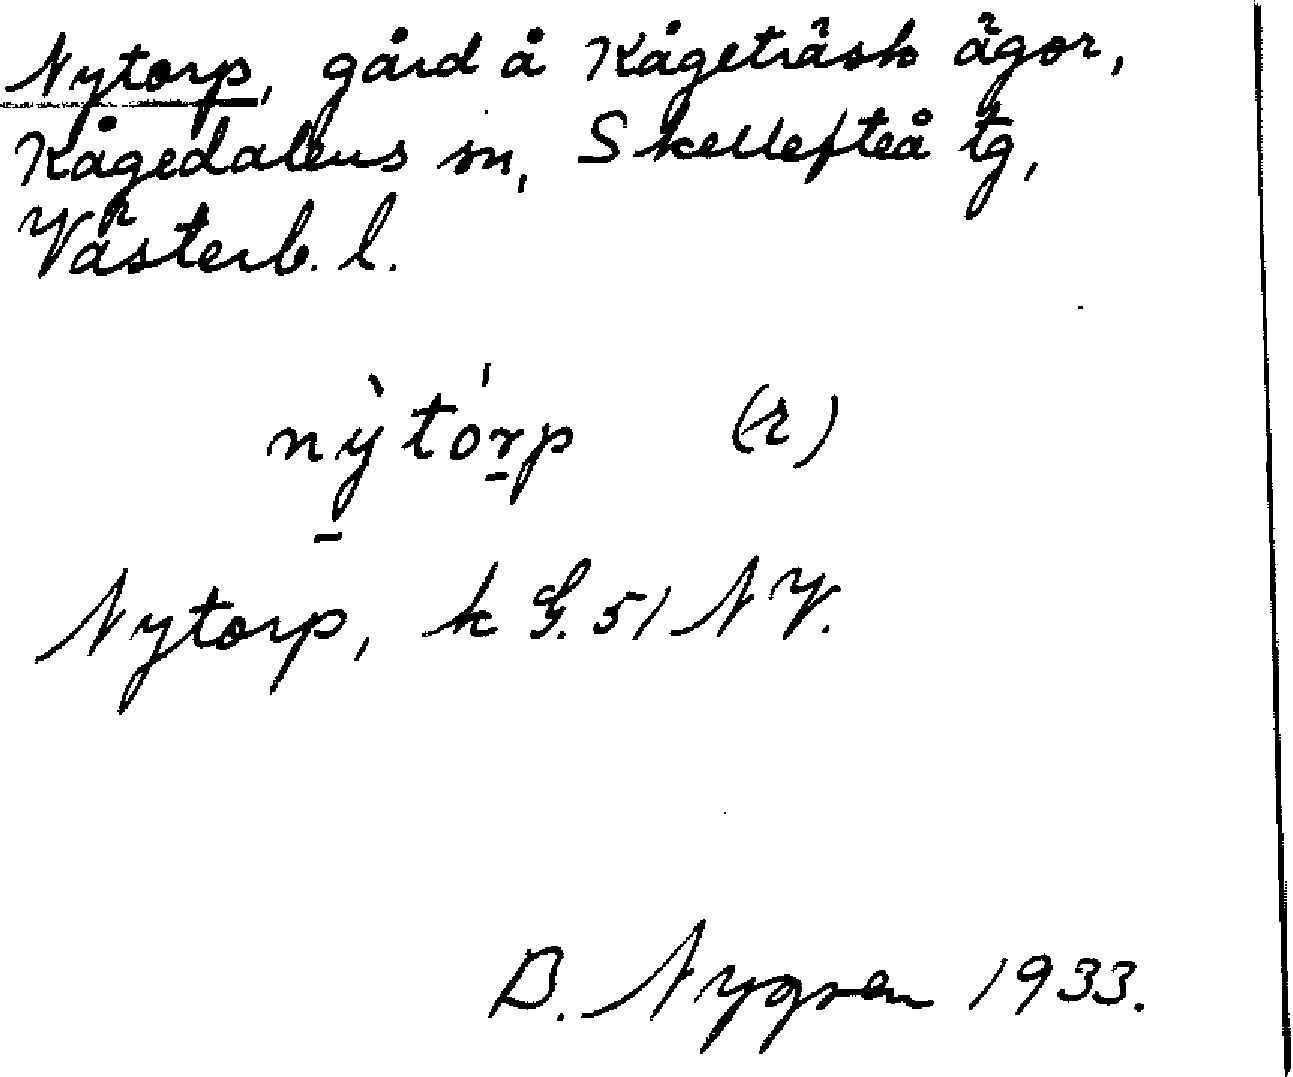 Nytorp, gård å Kågeträsk ägor,
Kågedalens sn, Skellefteå tg,
Västerb. l.
nỳtórp (-r)
Nytorp, k G. 51 NV.
B. Nygren 1933.